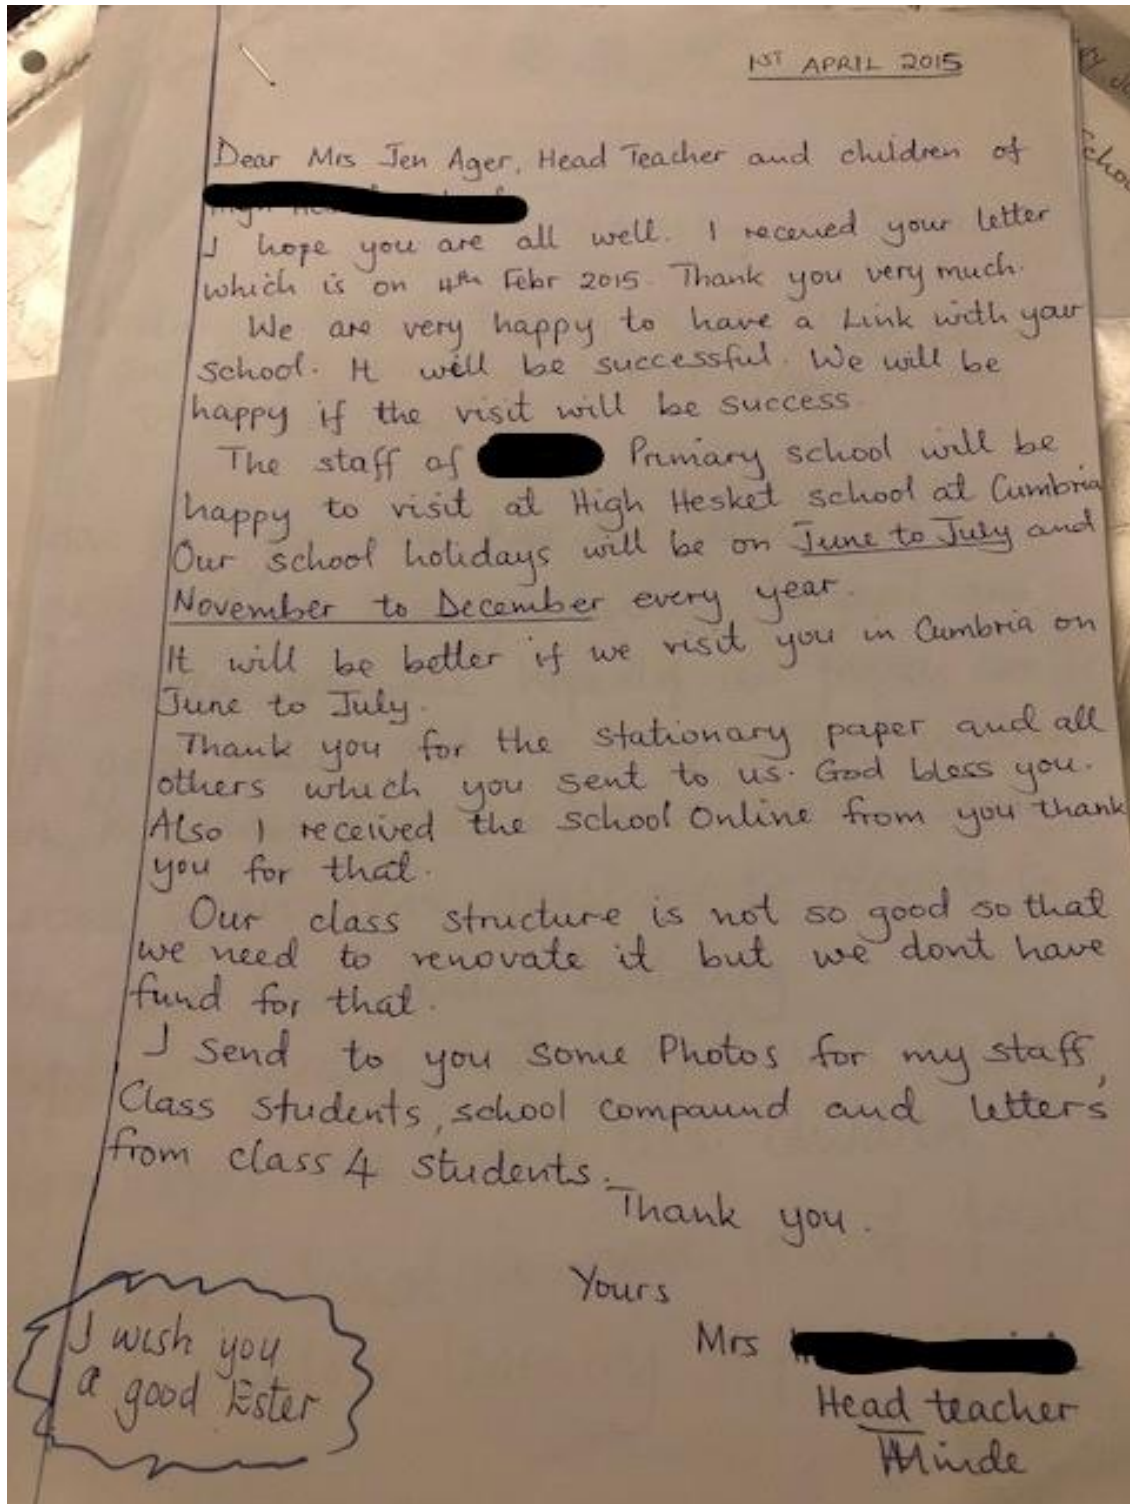 1ST APRIL 2015
Dear Mrs Jen Ager, Head Teacher and children of
I hope you are all well. I received your letter
which is on 4th Febr 2015. Thank you very much.
We are very happy to have a Link with your
school. It will be successful. We will be
happy if the visit will be success
The staff of Primary school will be
happy to visit at High Hesket school at Cumbria
Our school holidays will be on June to July and
November to December every year.
It will be better if we visit you in Cumbria on
June to July.
Thank you for the stationary paper and all
others which you sent to us. God bless you.
Also I received the school Online from you thank
you for that.
Our class structure is not so good so that
we need to renovate it but we dont have
fund for that.
I send to you some Photos for my staff,
Class students, school compaund and letters
from class 4 students.
Thank you.
Yours
Mrs
Head teacher
I wish you
a good Ester